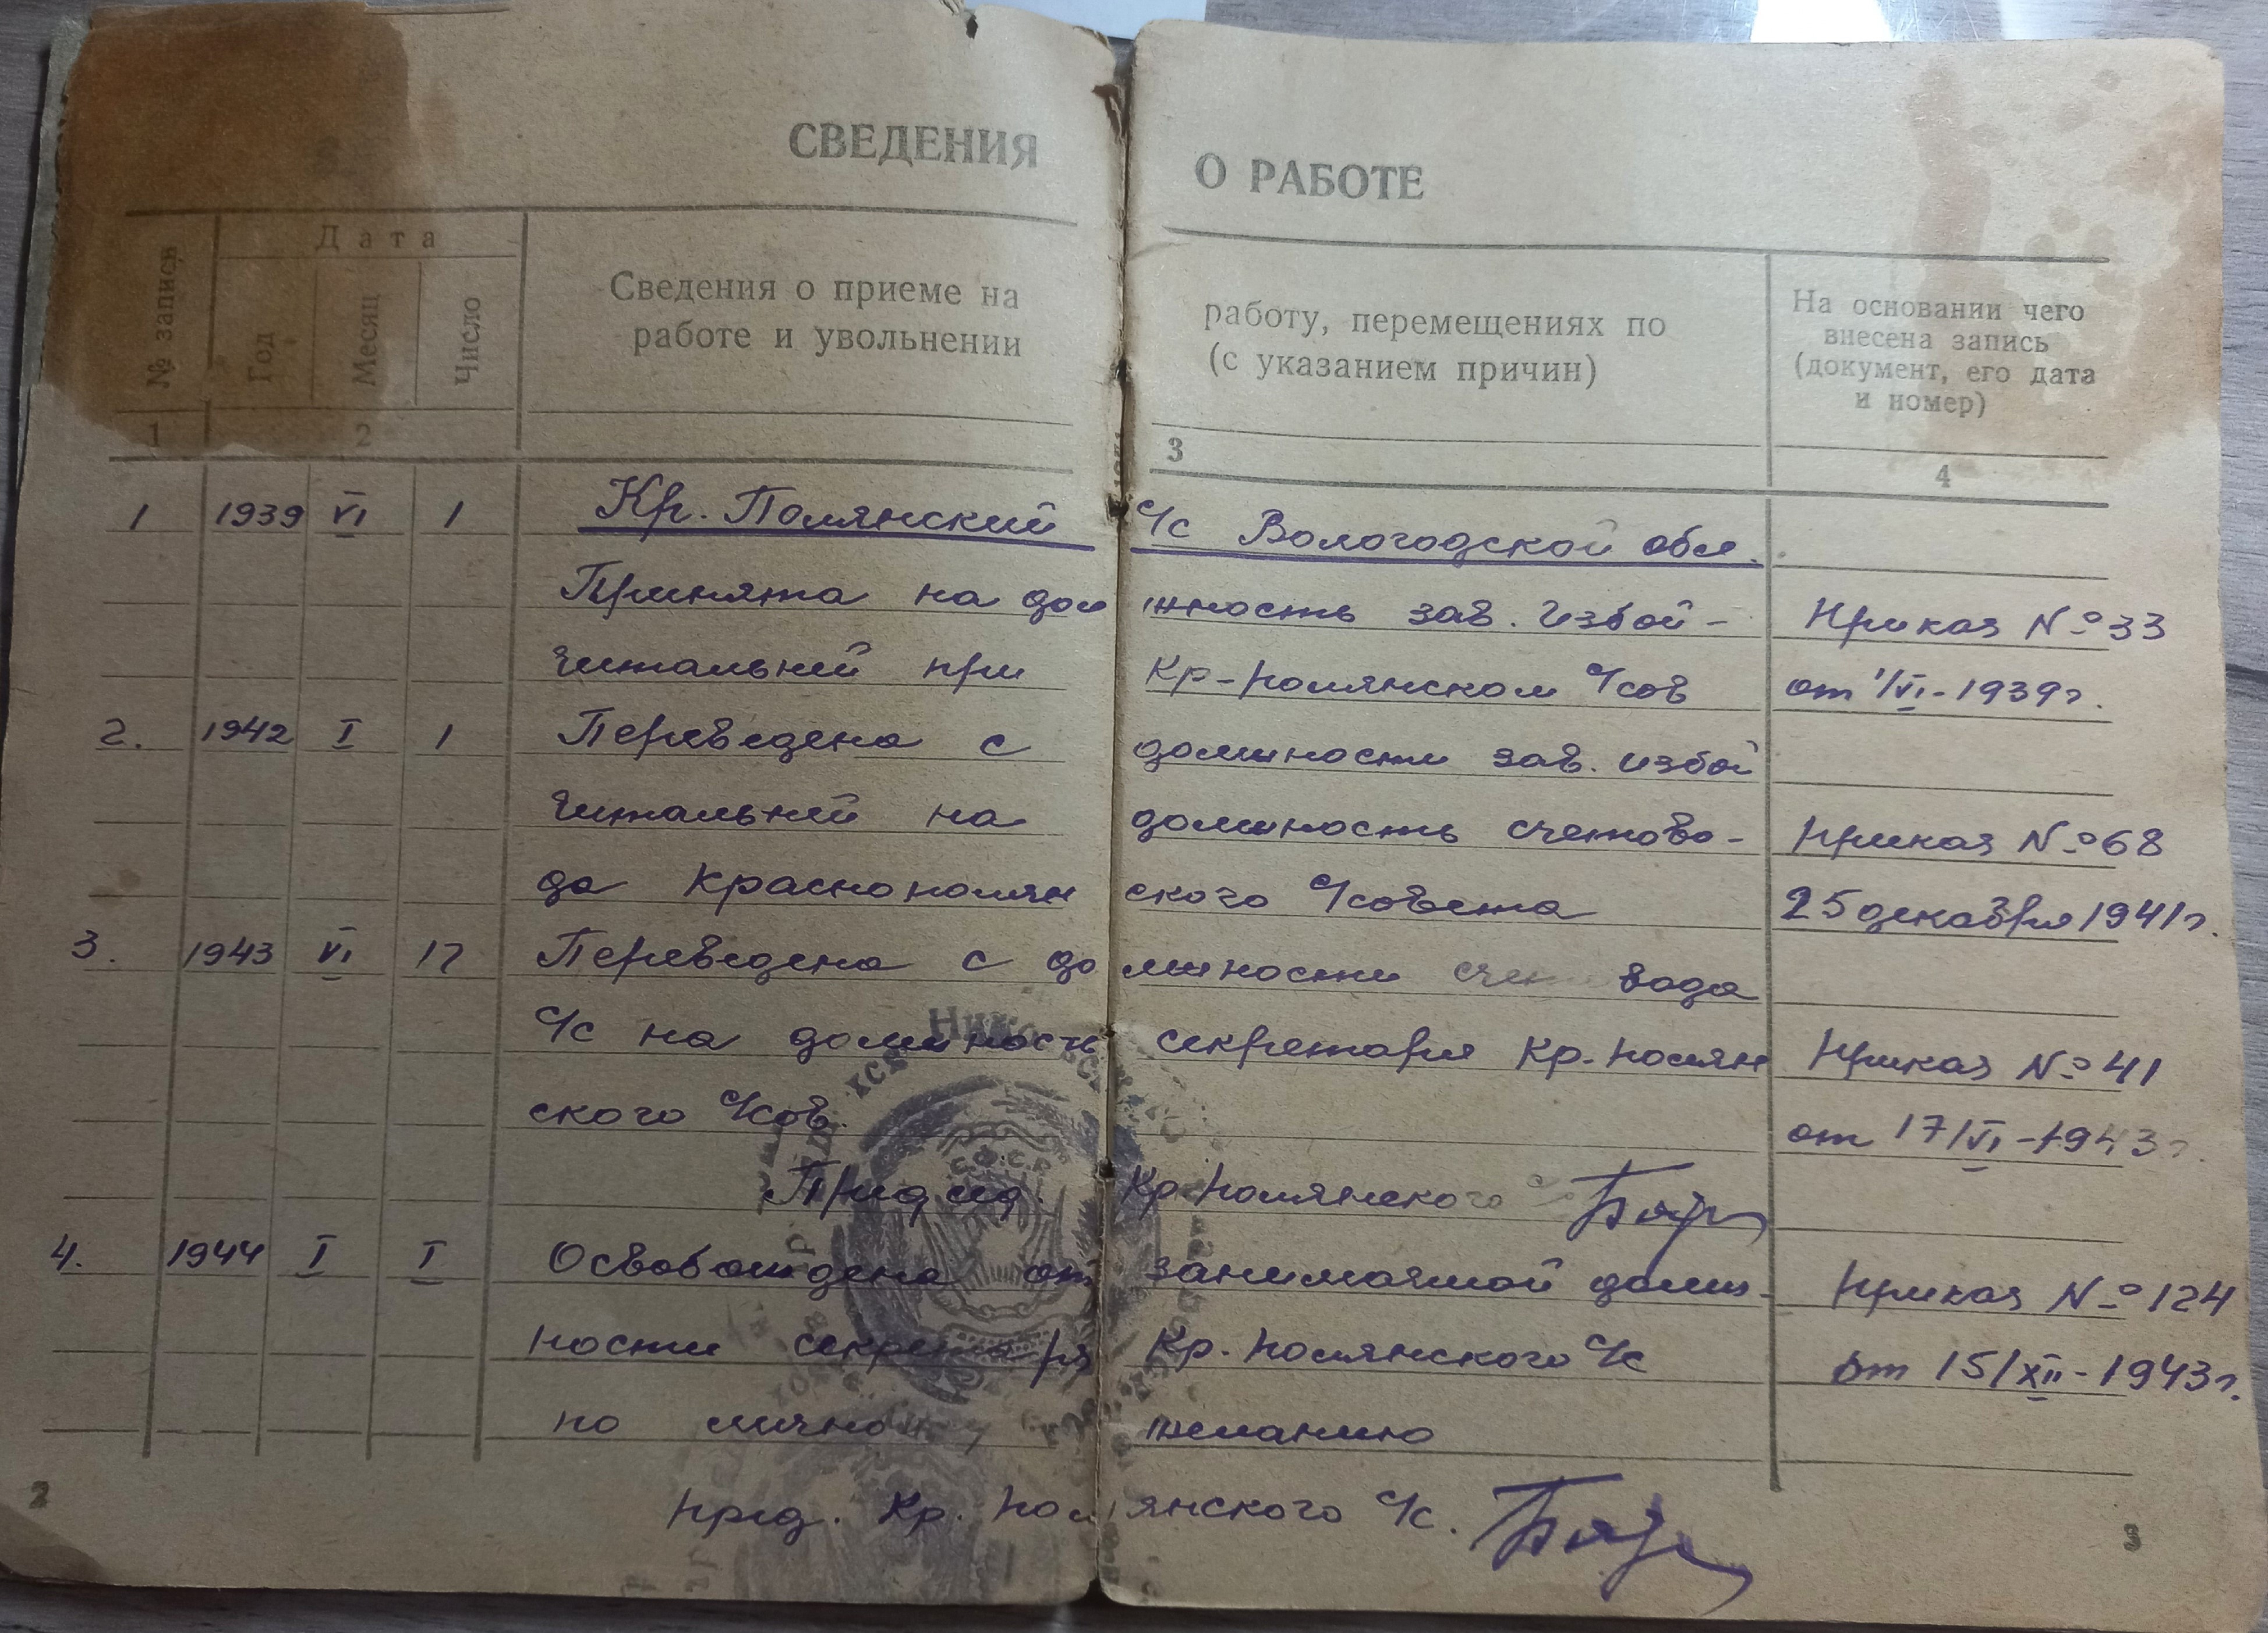 СВЕДЕНИЯ О РАБОТЕ
№ записи
Дата
Год
Месяц
Число
Сведения о приеме на работу, перемещениях по
работе и увольнении (с указанием причин)
На основании чего
внесена запись
(документ, его дата
и номер)
1 2 3 4
1 1939 VI 1 Кр. Полянский с/с Вологодской обл.
Принята на должность зав. избой- Приказ № 33
читальней при Кр-полянском с/сов от 1/VI-1939г.
2. 1942 I 1 Переведена с должности зав. избой
читальней на должность счетово- Приказ № 68
да Краснополянского с/совета 25 декабря 1941г.
3. 1943 VI 17 Переведена с должности счетовода
с/с на должность секретаря Кр. полян Приказ № 41
ского с/сов. от 17/VI-1943г.
Председ. Кр. полянского
4. 1944 I I Освобождена от занимаемой долж- Приказ № 124
ности секретаря Кр. полянского с/с от 15/XII-1943г.
по личному желанию
пред. Кр. полянского с/с.
2 3